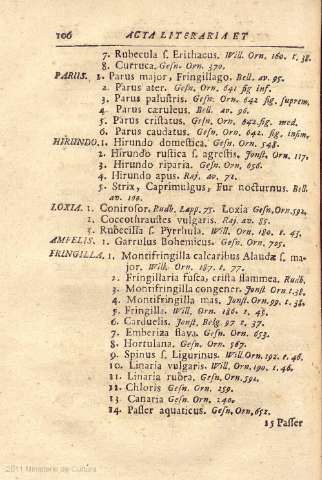 106 ACTA LITERARIA ET
7. Rubecula s. Erithacus. Will. Orn. 160. t. 38.
8. Curruca. Gesn. Orn. 370.
PARUS. 1. Parus major, Fringillago. Bell. av. 95.
2. Parus ater. Gesn. Orn. 641 fig inf.
3. Parus palustris. Gesn. Orn. 642 fig. suprem.
4. Parus cæruleus. Bell. av. 96.
5. Parus cristatus. Gesn. Orn. 642. fig. med.
6. Parus caudatus. Gesn. Orn. 642. fig. infim.
HIRUNDO. 1. Hirundo domestica. Gesn. Orn. 548.
2. Hirundo rustica s. agrestis. Jonst. Orn. 117.
3. Hirundo riparia. Gesn, Orn, 656.
4. Hirundo apus. Raj. av. 72.
5. Strix, Caprimulgus, Fur nocturnus. Bell.
av. 190.
LOXIA. 1. Coniroſor. Rudb. Lapp. 75. Loxia Gesn, Orn, 592,
2. Coccothraustes vulgaris. Raj. av. 85.
3. Rubecilla s. Pyrrhula. Will. Orn. 180. t. 43.
AMPELIS. 1. Garrulus Bohemicus. Gesn. Orn, 703.
FRINGILLA. 1. Montifringilla calcaribus Alaudæ s. ma-
jor. Will. Orn. 187. t. 77.
2. Fringillaria fusca, crista flammea. Rudb.
3. Montifringilla congener. Jonst Orn t. 38.
4. Montifringilla mas. Jonst. Orn. 99. t. 38.
5. Fringilla. Will. Orn. 186. t. 45.
6. Carduelis. Jonst. Belg. 97 t. 37.
7. Emberiza flava. Gesn. Orn. 653.
8. Hortulana. Gesn. Orn. 567.
9. Spinus s. Ligurinus. Will. Orn. 192. t. 46.
10. Linaria vulgaris. Will. Orn. 190. t. 46,
11. Linaria rubra. Gesn, Orn, 591.
12. Chloris Gesn. Orn. 259.
13. Canaria Gesn. Orn. 240.
14. Passer aquaticus. Gesn, Orn, 652.
15 Passer
2011 Ministerio de Cultura